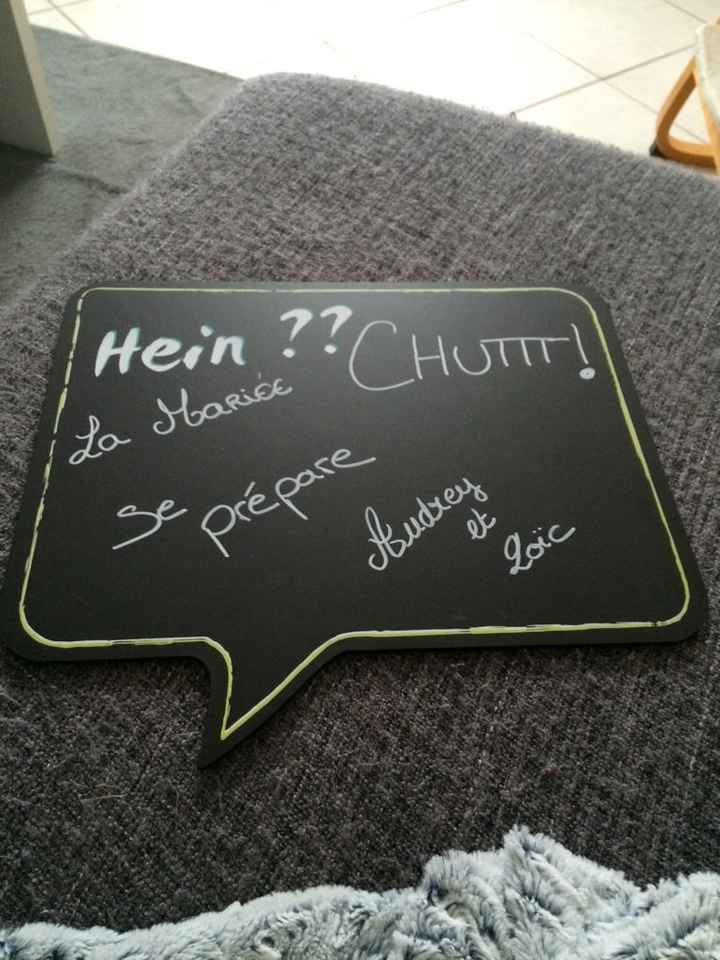 Hein ?? CHUTTT!
La Mariée
se prépare
Audrey
et
Loïc